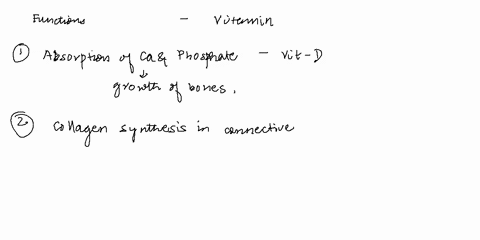 Functions - Vitamin
① Absorption of Ca & Phosphate - Vit-D
↓
growth of bones.
② Collagen synthesis in connective